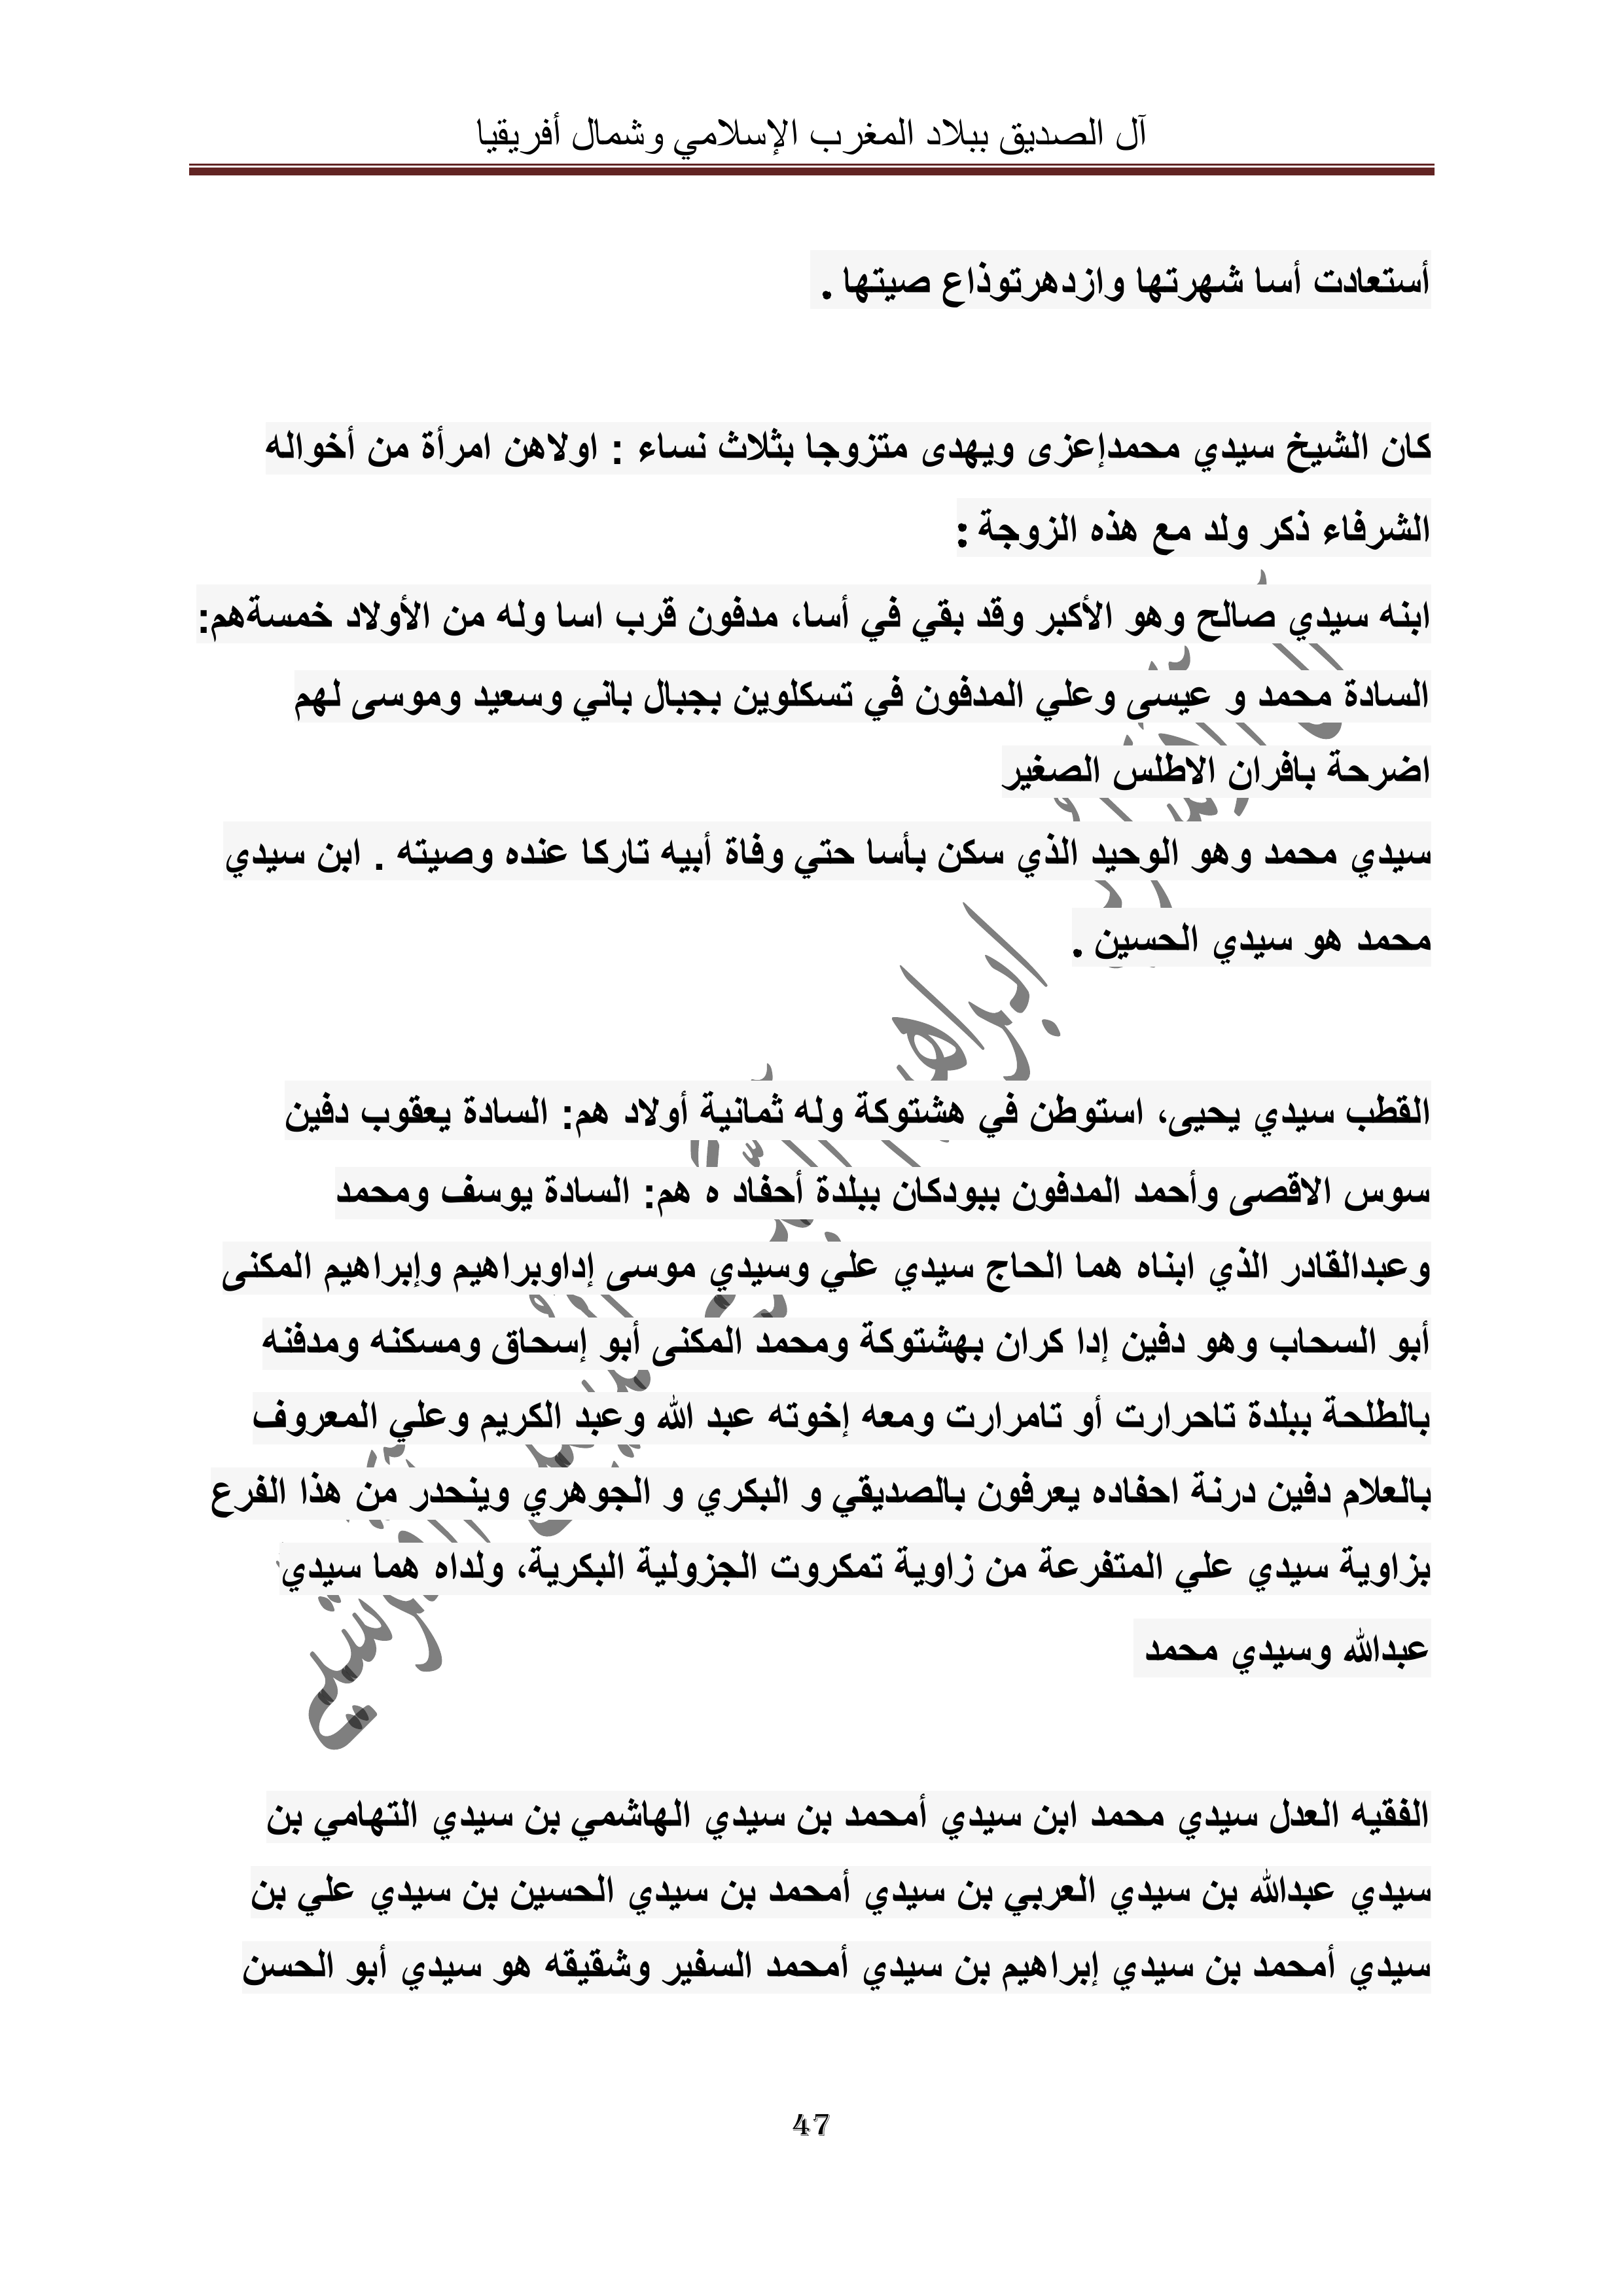 آل الصديق ببلاد المغرب الإسلامي وشمال أفريقيا
أستعادت أسا شهرتها وازدهرتوذاع صيتها .
كان الشيخ سيدي محمدإعزى ويهدى متزوجا بثلاث نساء : اولاهن امرأة من أخواله
الشرفاء ذكر ولد مع هذه الزوجة :
ابنه سيدي صالح وهو الأكبر وقد بقي في أسا، مدفون قرب اسا وله من الأولاد خمسةهم:
السادة محمد و عيسى وعلي المدفون في تسكلوين بجبال باني وسعيد وموسى لهم
اضرحة بافران الاطلس الصغير
سيدي محمد وهو الوحيد الذي سكن بأسا حتي وفاة أبيه تاركا عنده وصيته . ابن سيدي
محمد هو سيدي الحسين .
القطب سيدي يحيى، استوطن في هشتوكة وله ثمانية أولاد هم: السادة يعقوب دفين
سوس الاقصى وأحمد المدفون ببودكان ببلدة أحفاد ه هم: السادة يوسف ومحمد
وعبدالقادر الذي ابناه هما الحاج سيدي علي وسيدي موسى إداوبراهيم وإبراهيم المكنى
أبو السحاب وهو دفين إدا كران بهشتوكة ومحمد المكنى أبو إسحاق ومسكنه ومدفنه
بالطلحة ببلدة تاحرارت أو تامرارت ومعه إخوته عبد الله وعبد الكريم وعلي المعروف
بالعلام دفين درنة احفاده يعرفون بالصديقي و البكري و الجوهري وينحدر من هذا الفرع
بزاوية سيدي علي المتفرعة من زاوية تمكروت الجزولية البكرية، ولداه هما سيدي
عبدالله وسيدي محمد
الفقيه العدل سيدي محمد ابن سيدي أمحمد بن سيدي الهاشمي بن سيدي التهامي بن
سيدي عبدالله بن سيدي العربي بن سيدي أمحمد بن سيدي الحسين بن سيدي علي بن
سيدي أمحمد بن سيدي إبراهيم بن سيدي أمحمد السفير وشقيقه هو سيدي أبو الحسن
47